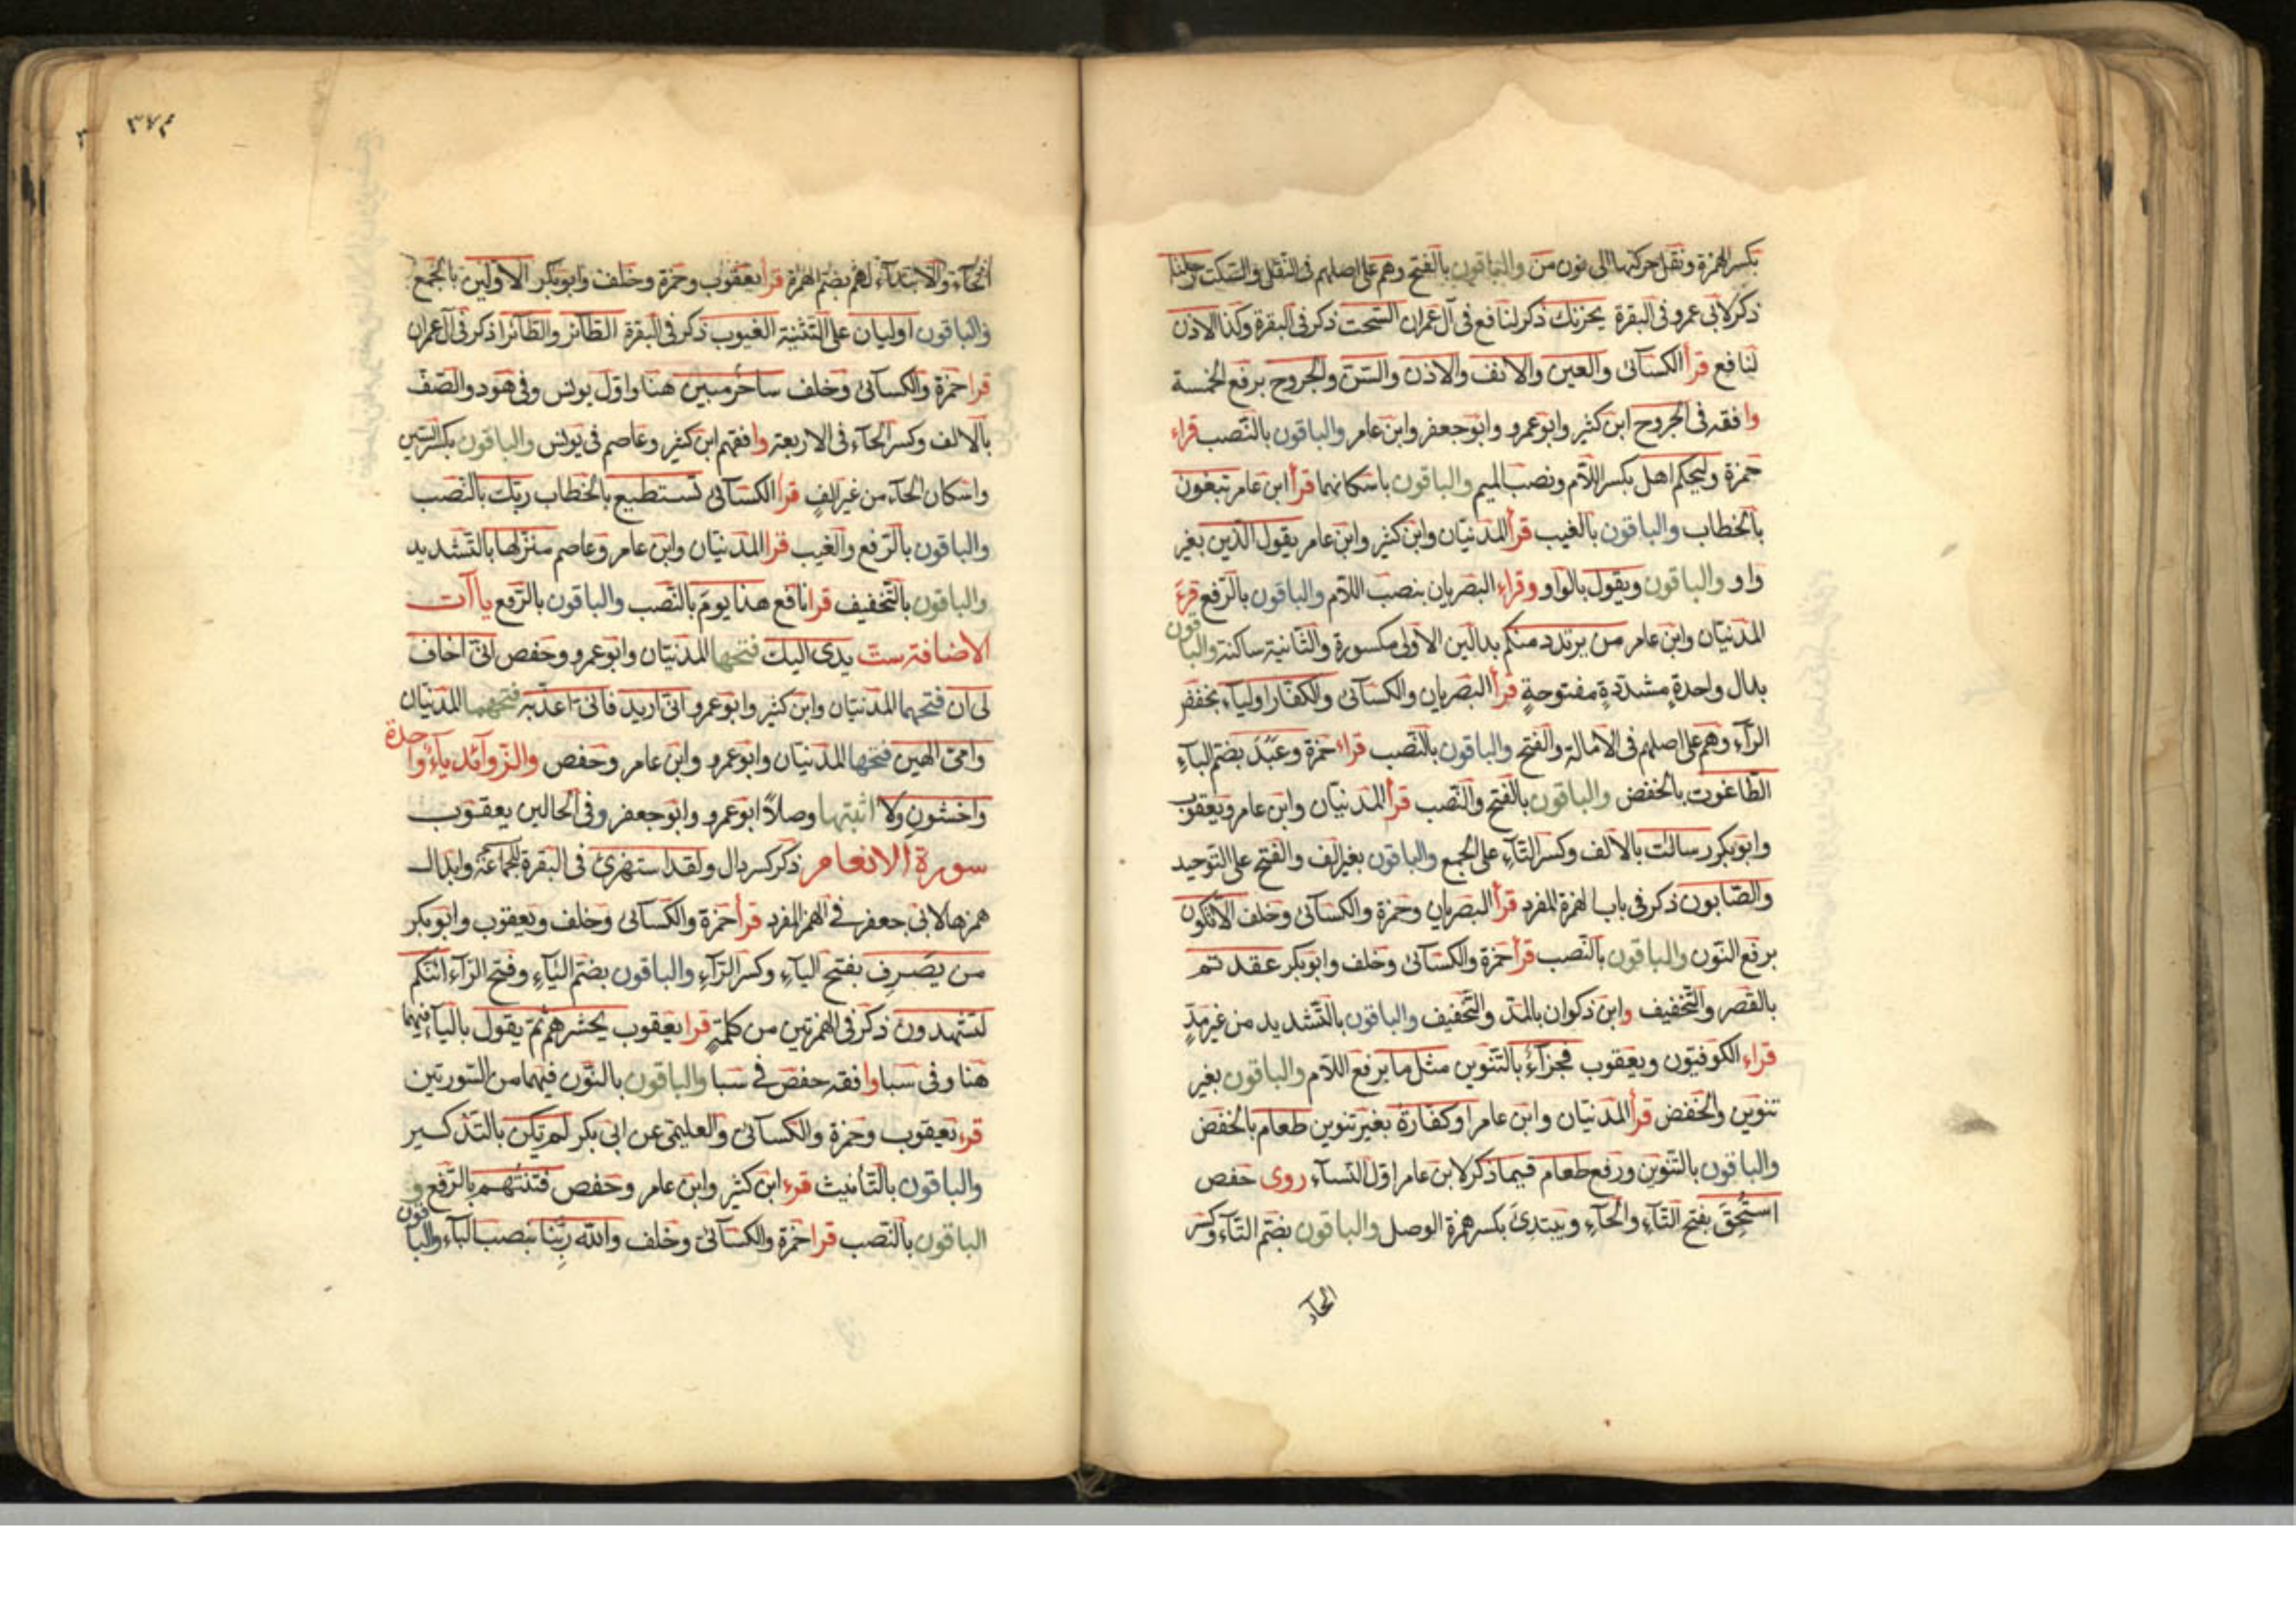 بكسر الهمزة ونقل حركتها الى نون من والباقون بالفتح وهم على اصلهم فى النقل والسكت
ذكر لابى عمرو فى البقرة يحزنك ذكر لنافع فى آل عمران السحت ذكر فى البقرة وكذا الاذن
لنافع قرأ الكسآئى والعين والانف والاذن والسن والجروح برفع الخمسة
وافقه فى الجروح ابن كثير وابو عمرو وابو جعفر وابن عامر والباقون بالنصب قراء
حمزة وليحكم اهل بكسر اللام ونصب الميم والباقون باسكانهما قرأ ابن عامر تبغون
بالخطاب والباقون بالغيب قرأ المدنيان وابن كثير وابن عامر يقول الذين بغير
واو والباقون ويقول بالواو وقراء البصريان بنصب اللام والباقون بالرفع قرء
المدنيان وابن عامر من يرتدد منكم بدالين الاولى مكسورة والثانية ساكنة والباقون
بدال واحدة مشددة مفتوحة قرأ البصريان والكسآئى والكفار اولياء بخفض
الرآء وهم على اصلهم فى الامالة والفتح والباقون بالنصب قراء حمزة وعبد بضم البآء
الطاغوت بالخفض والباقون بالفتح والنصب قرأ المدنيان وابن عامر ويعقوب
وابو بكر رسالت بالالف وكسر التآء على الجمع والباقون بغير الف والفتح على التوحيد
والصابون ذكر فى باب الهمزة المفرد قرأ البصريان وحمزة والكسآئى وخلف الا تكون
برفع النون والباقون بالنصب قرأ حمزة والكسآئى وخلف وابو بكر عقدتم
بالقصر والتخفيف وابن ذكوان بالمد والتخفيف والباقون بالتشديد من غير مد
قراء الكوفيون ويعقوب فجزآء بالتنوين مثل ما برفع اللام والباقون بغير
تنوين والخفض قرأ المدنيان وابن عامر او كفارة بغير تنوين طعام بالخفض
والباقون بالتنوين ورفع طعام قيما ذكر لابن عامر اول النسآء روى حفص
استحق بفتح التآء والحآء ويبتدئ بكسر همزة الوصل والباقون بضم التآء وكسر
الحآء
٣٧٤
الحآء والابتدآء لهم بضم الهمزة قرأ يعقوب وحمزة وخلف وابو بكر الاولين بالجمع
والباقون اوليان على التثنية الغيوب ذكر فى البقرة الطآئر والطآئرا ذكر فى آل عمران
قرا حمزة والكسآئى وخلف ساحر مبين هنا واول يونس وفى هود والصف
بالالف وكسر الحآء فى الاربعة وافقهم ابن كثير وعاصم فى يونس والباقون بكسر السين
واسكان الحآء من غير الف قرأ الكسآئى تستطيع بالخطاب ربك بالنصب
والباقون بالرفع والغيب قرا المدنيان وابن عامر وعاصم منزلها بالتشديد
والباقون بالتخفيف قرا نافع هذا يوم بالنصب والباقون بالرفع ياآت
الاضافة ست يدى اليك فتحها المدنيان وابو عمرو وحفص انى اخاف
لى ان فتحهما المدنيان وابن كثير وابو عمرو انى اريد فانى اعذبه فتحهما المدنيان
وامى الهين فتحها المدنيان وابو عمرو وابن عامر وحفص والزوآئد يآء واحدة
واخشون ولا اثبتها وصلا ابو عمرو وابو جعفر وفى الحالين يعقوب
سورة الانعام ذكر كسر دال ولقد استهزئ فى البقرة للجماعة وابدال
همزها لابى جعفر فى الهمز المفرد قرأ حمزة والكسآئى وخلف ويعقوب وابو بكر
من يصرف بفتح اليآء وكسر الرآء والباقون بضم اليآء وفتح الرآء ائنكم
لتشهدون ذكر فى الهمزتين من كلمة قرا يعقوب يحشرهم ثم يقول باليآء فيهما
هنا وفى سبا وافقه حفص فى سبا والباقون بالنون فيهما من السورتين
قرء يعقوب وحمزة والكسآئى والعليمى عن ابى بكر لم يكن بالتذكير
والباقون بالتانيث قرء ابن كثير وابن عامر وحفص فتنتهم بالرفع و
الباقون بالنصب قرا حمزة والكسآئى وخلف والله ربنا بنصب البآء والباقون